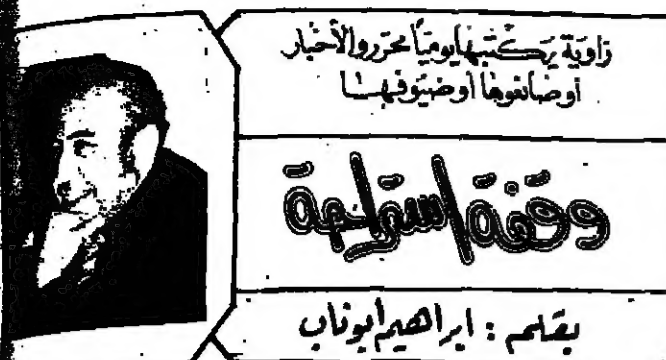 زاوية يكتبها يومياً محررو الأخبار
أو صانعوها أو ضيوفها
وقفة استراحة
بقلم : ابراهيم ابوناب